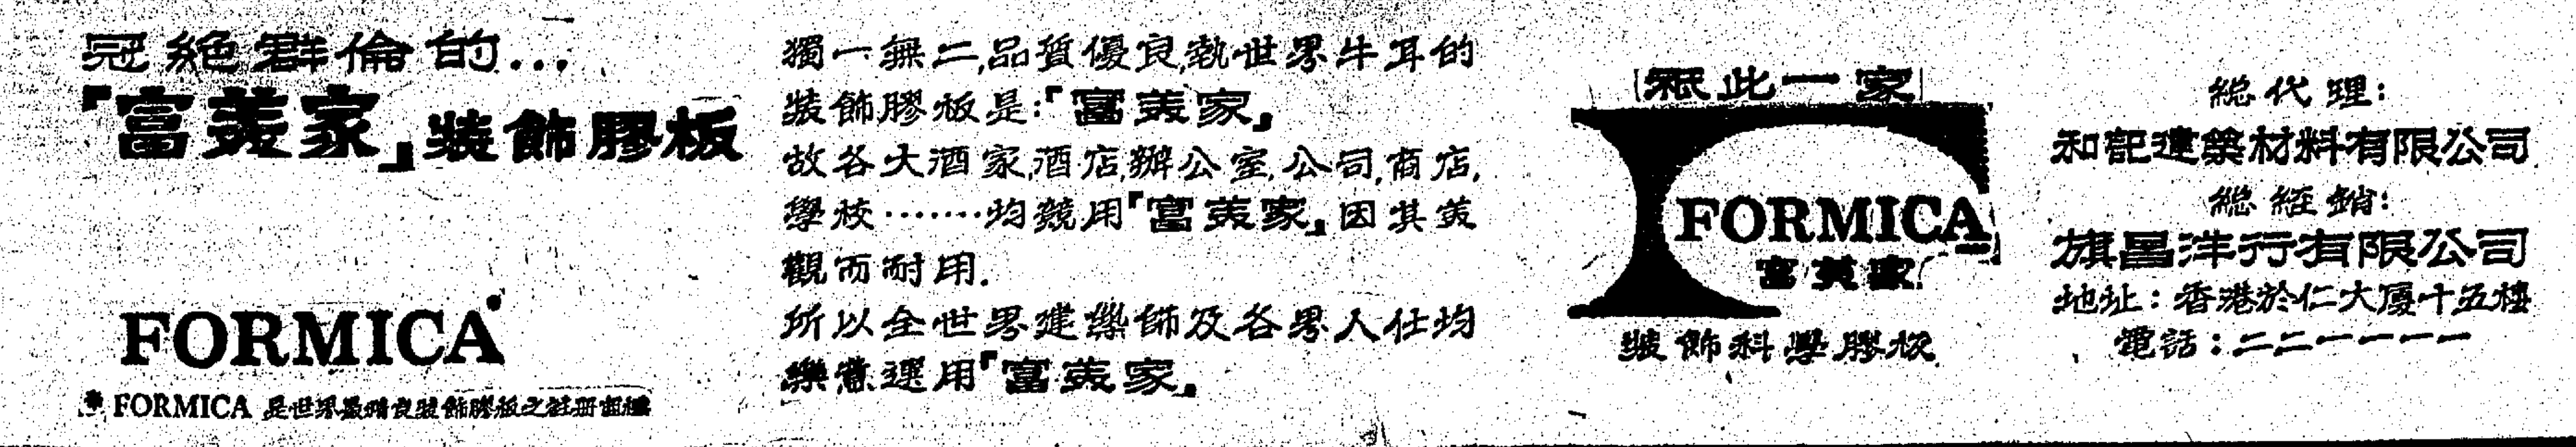 冠絕群倫的...
「富美家」裝飾膠板
FORMICA
* FORMICA 是世界最精良裝飾膠板之註冊商標
獨一無二,品質優良,執世界牛耳的
裝飾膠板是:「富美家」
故各大酒家,酒店,辦公室,公司,商店,
學校·······均競用「富美家」因其美
觀而耐用.
所以全世界建築師及各界人仕均
樂意選用「富美家」
祇此一家
FORMICA
富美家
裝飾科學膠板
總代理:
和記建築材料有限公司
總經銷:
旗昌洋行有限公司
地址:香港於仁大厦十五樓
電話:二二一一一一